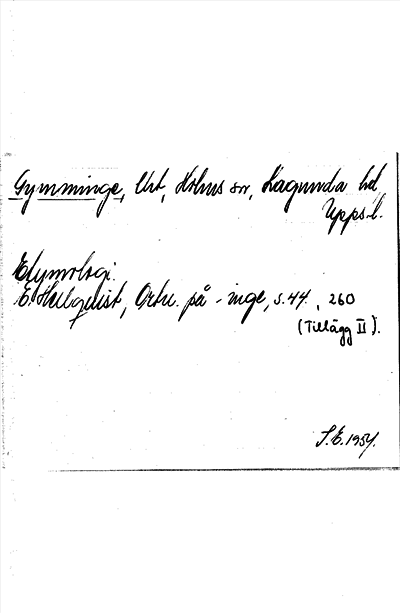 Gymminge, Uht, Holms sn, Lagunda hd,
Upps. l.
Etymologi:
E. Hellquist, Ortn. på -inge, s. 44, 260
(Tillägg II).
S.E. 1954.